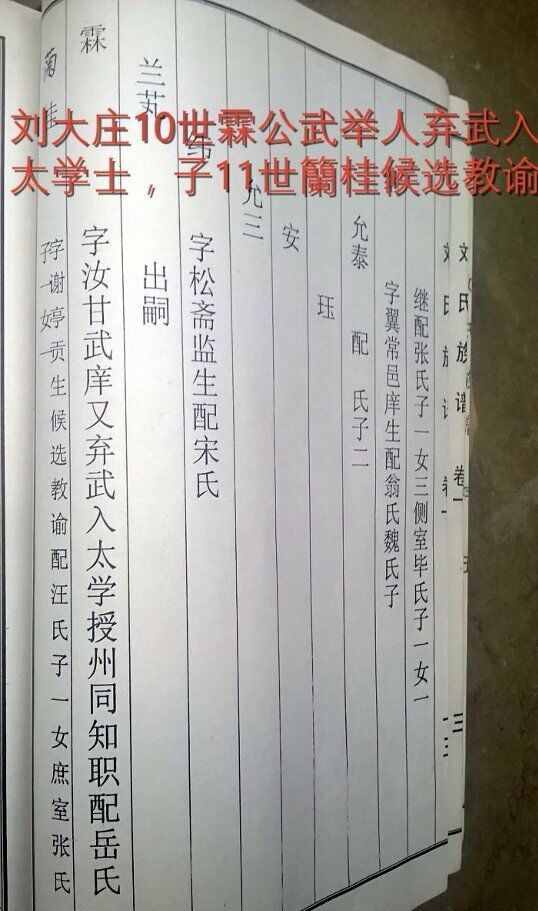 刘大庄10世霖公武举人弃武入
太学士，子11世蘭桂候选教谕
文氏族谱 卷一
继配张氏子一女三侧室毕氏子一女一
字翼常邑庠生配翁氏魏氏子
允泰 配 氏子二
珏
安
允三
纬 字松斋监生配宋氏
兰芄 出嗣
霖 字汝甘武庠又弃武入太学授州同知职配岳氏
蘭桂 字谢婷贡生候选教谕配汪氏子一女庶室张氏